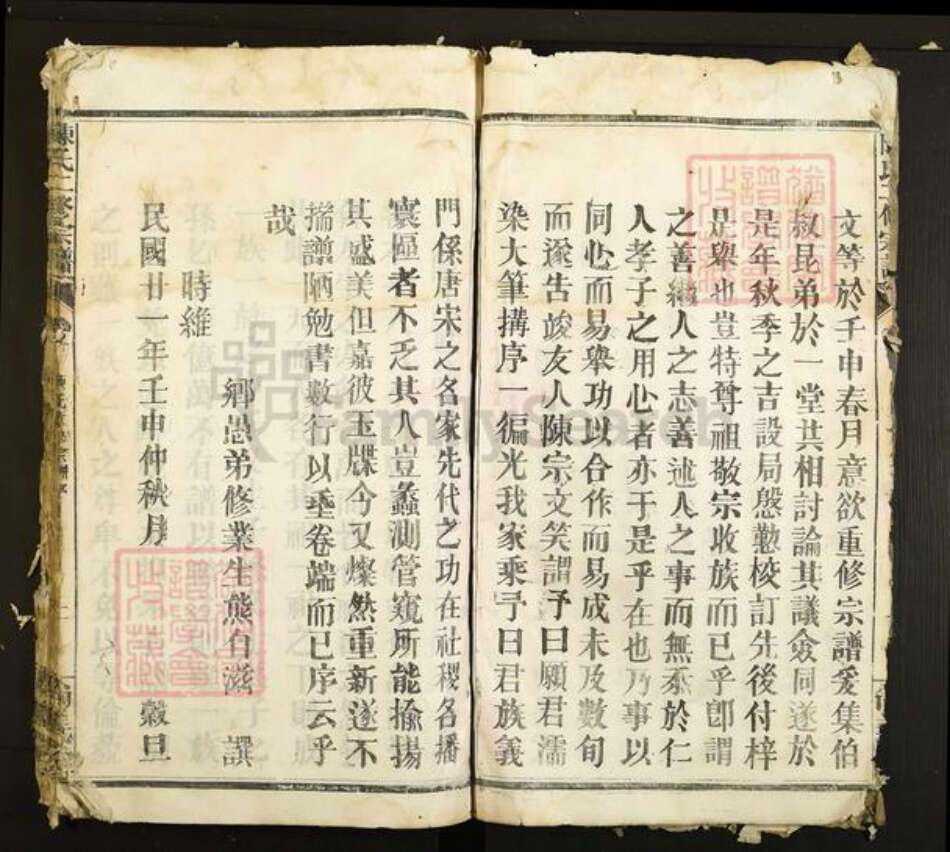 文等於壬申春月意欲重修宗譜爰集伯
叔昆弟於一堂共相討論其議僉同遂於
是年秋季之吉設局慇懃校訂先後付梓
是舉也豈特尊祖敬宗收族而已乎卽謂
之善繼人之志善述人之事而無忝於仁
人孝子之用心者亦于是乎在也乃事以
同心而易舉功以合作而易成未及數旬
而遂告竣友人陳宗文笑謂予曰願君濡
染大筆搆序一徧光我家乘予曰君族義
門係唐宋之名家先代之功在社稷名播
寰區者不乏其人豈蠡測管窺所能揄揚
其盛美但嘉彼玉牒今又燦然重新遂不
揣譾陋勉書數行以垂卷端而已序云乎
哉
鄉愚弟修業生熊自滋 譔
時維
民國廿一年壬申仲秋月 穀旦
陳氏三修宗譜
FamilySearch